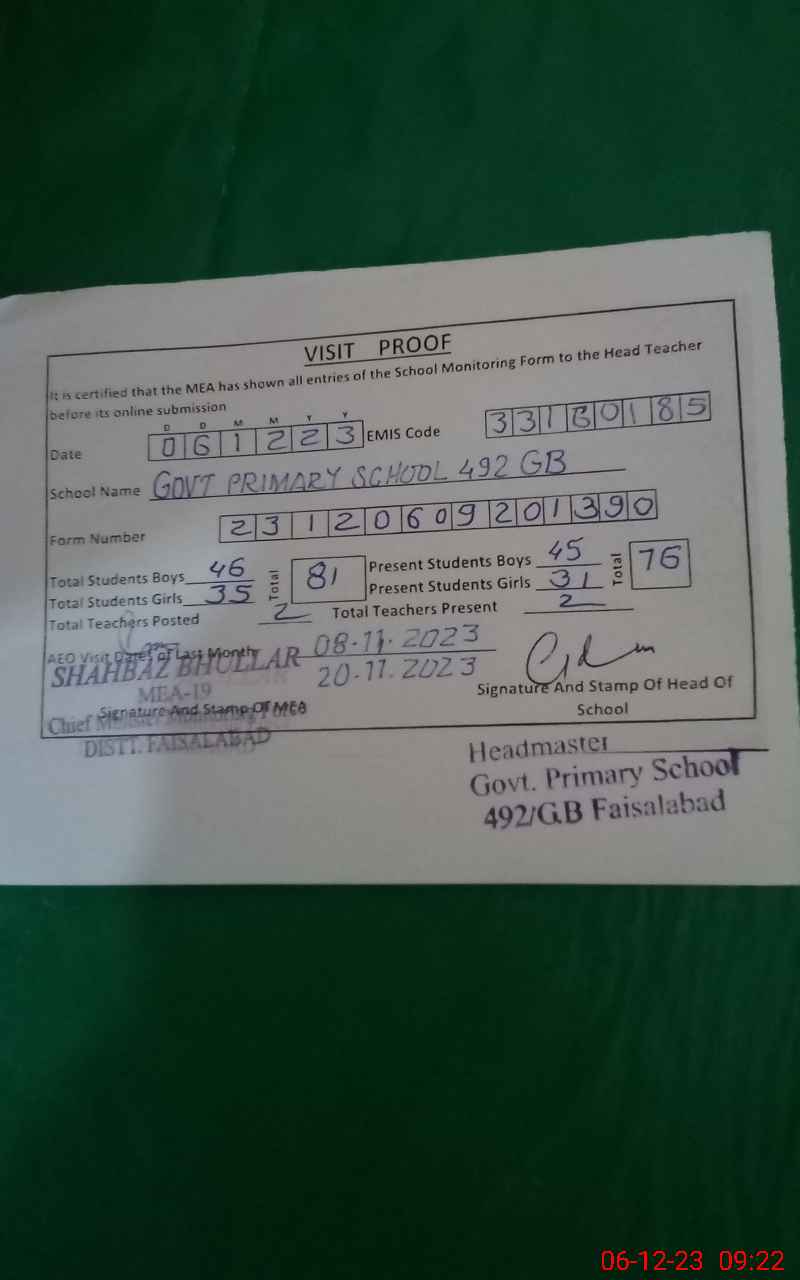 VISIT PROOF
It is certified that the MEA has shown all entries of the School Monitoring Form to the Head Teacher
before its online submission
D D M M Y Y
Date 061223 EMIS Code 33160185
School Name GOVT PRIMARY SCHOOL 492 GB
Form Number 23120609201390
Total Students Boys 46 Total 81 Present Students Boys 45 Total 76
Total Students Girls 35 Present Students Girls 31
Total Teachers Posted 2 Total Teachers Present 2
AEO Visit Dates of Last Month 08-11-2023
20-11-2023
SHAHBAZ BHULLAR
MEA-19
Signature And Stamp Of MEA
Chief Minister Monitoring Force
DISTT. FAISALABAD
Signature And Stamp Of Head Of
School
Headmaster
Govt. Primary School
492/G.B Faisalabad
06-12-23 09:22